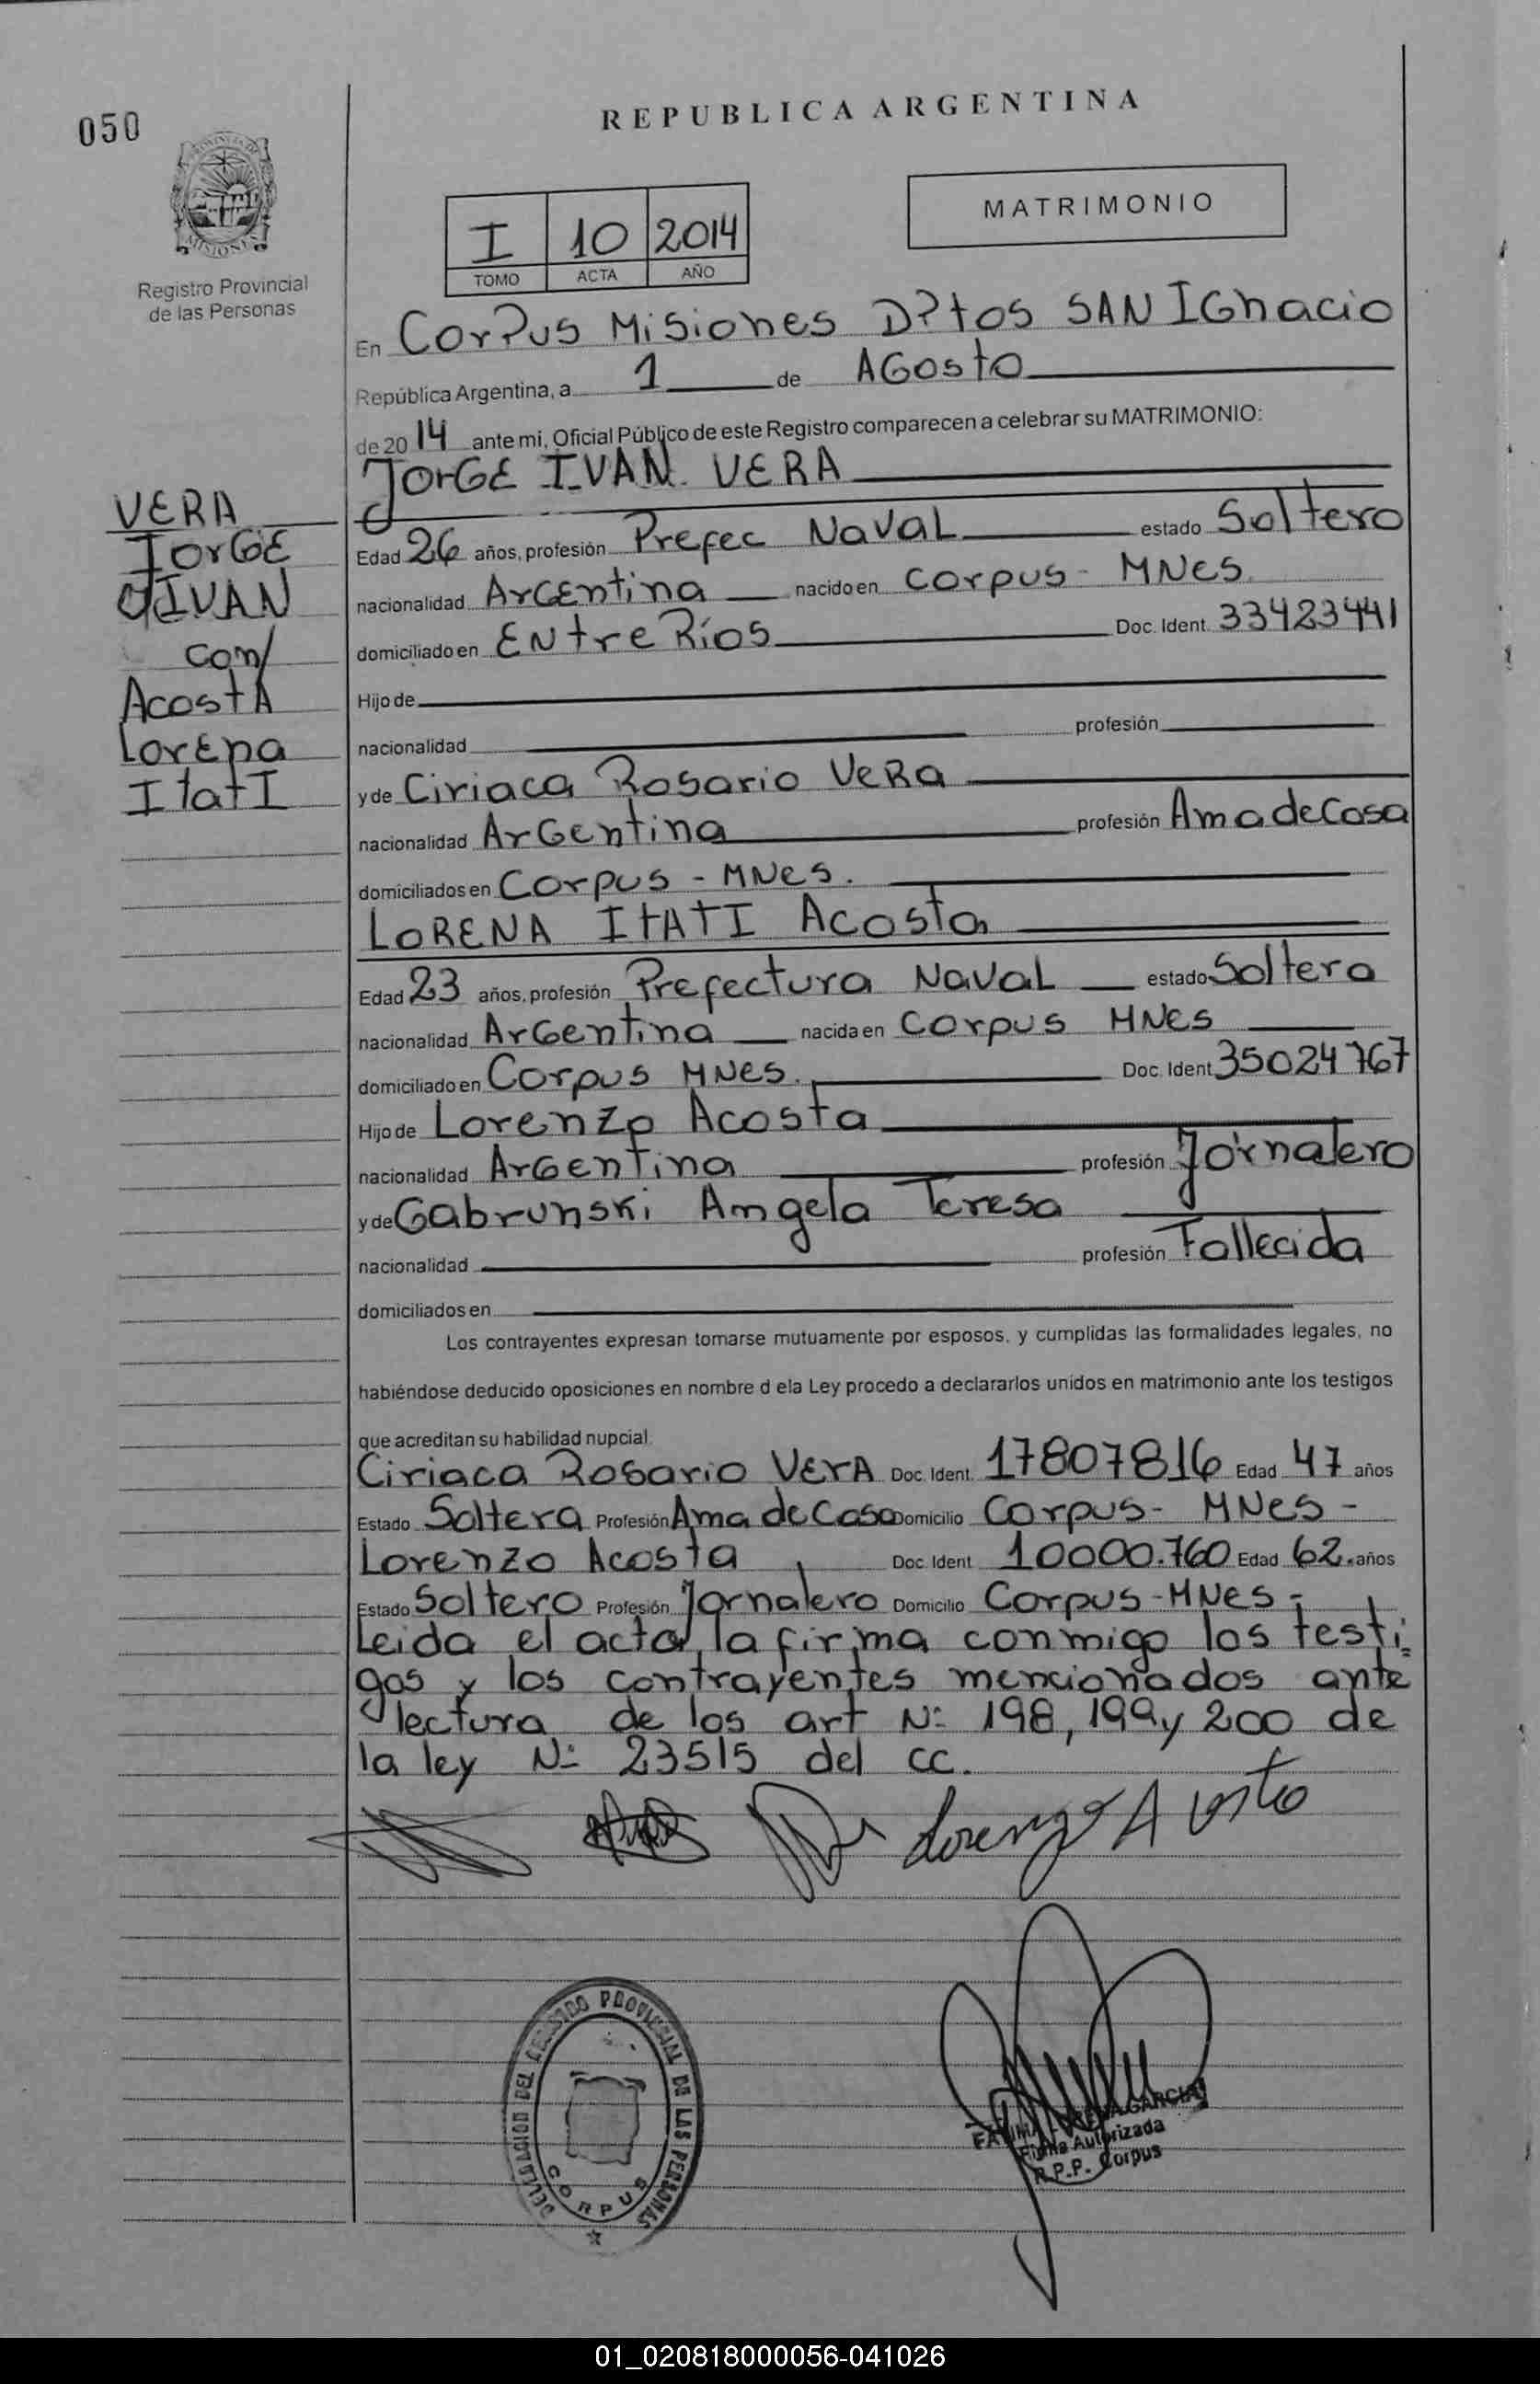 050
REPUBLICA ARGENTINA
PROVINCIA DE
MISIONES
Registro Provincial
de las Personas
I 10 2014
TOMO ACTA AÑO
MATRIMONIO
En Corpus Misiones Dptos SAN IGnacio
República Argentina, a 1 de AGosto
de 20 14 ante mi, Oficial Público de este Registro comparecen a celebrar su MATRIMONIO:
JorGE IVAN VERA
VERA
JorGE
IVAN
con/
AcostA
LorEna
ItatI
Edad 26 años, profesión Prefec Naval estado Soltero
nacionalidad ArGEntina nacido en Corpus - MNes
domiciliado en Entre Ríos Doc. Ident. 33423441
Hijo de
nacionalidad profesión
y de Ciriaca Rosario VeRa
nacionalidad ArGentina profesión Ama de Casa
domiciliados en Corpus - MNes.
LORENA ItATI Acosta
Edad 23 años, profesión Prefectura Naval estado Soltera
nacionalidad ArGentina nacida en Corpus MNes
domiciliado en Corpus MNes. Doc. Ident. 35024767
Hijo de Lorenzo Acosta
nacionalidad ArGentina profesión Jornalero
y de Gabrunski Angela Teresa
nacionalidad profesión Fallecida
domiciliados en
Los contrayentes expresan tomarse mutuamente por esposos, y cumplidas las formalidades legales, no
habiéndose deducido oposiciones en nombre d ela Ley procedo a declararlos unidos en matrimonio ante los testigos
que acreditan su habilidad nupcial:
Ciriaca Rosario VerA Doc. Ident. 17807816 Edad 47 años
Estado Soltera Profesión Ama de Casa Domicilio Corpus - MNes -
Lorenzo Acosta Doc. Ident 10000.760 Edad 62. años
Estado Soltero Profesión Jornalero Domicilio Corpus - MNes -
Leida el acta, la firma conmigo los testi=
gos y los contrayentes mencionados ante
lectura de los art N: 198, 199 y 200 de
la ley N: 23515 del cc.
Lorenzo Acosta
DELEGACION DEL REGISTRO PROVINCIAL DE LAS PERSONAS
CORPUS
GARCIA
Firma Autorizada
R.P.P. Corpus
01_020818000056-041026